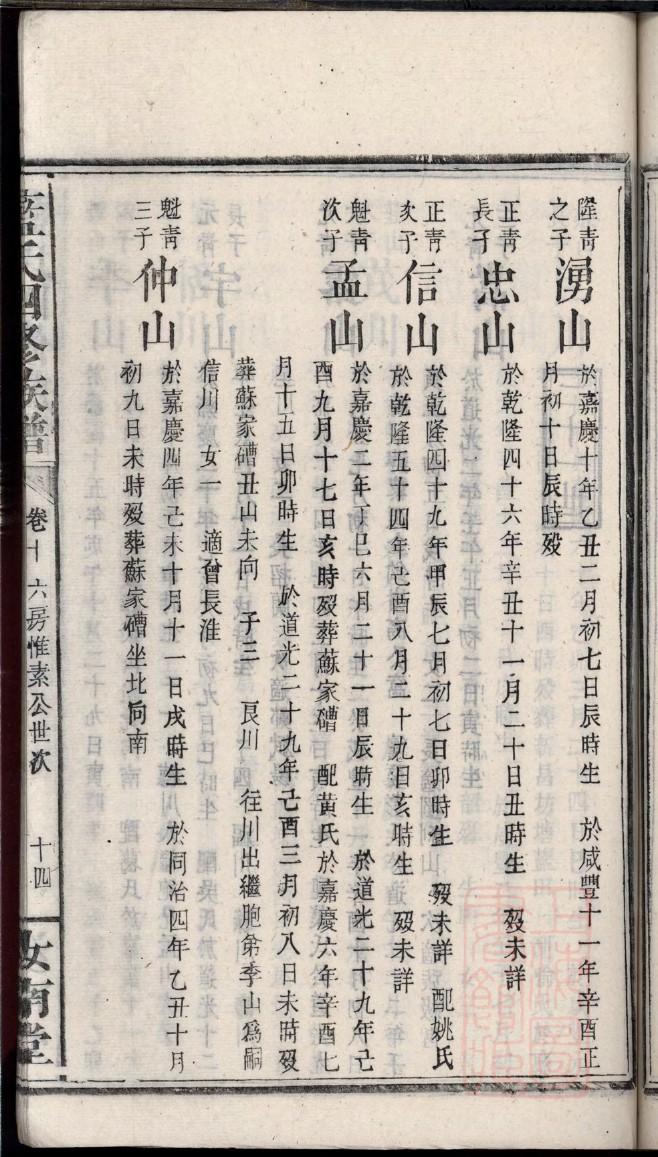 隆青之子 湧山 於嘉慶十年乙丑二月初七日辰時生 於咸豐十一年辛酉正
月初十日辰時歿
正青長子 忠山 於乾隆四十六年辛丑十一月二十日丑時生 歿未詳
正青次子 信山 於乾隆四十九年甲辰七月初七日卯時生 歿未詳 配姚氏
於乾隆五十四年己酉八月二十九日亥時生 歿未詳
魁青次子 孟山 於嘉慶二年丁巳六月二十一日辰時生 於道光二十九年己
酉九月十七日亥時歿葬蘇家磄 配黃氏於嘉慶六年辛酉七
月十五日卯時生 於道光二十九年己酉三月初八日未時歿
葬蘇家磄丑山未向 子三 艮川 往川出繼胞弟季山爲嗣
信川 女一 適曾長淮
魁青三子 仲山 於嘉慶四年己未十月十一日戌時生 於同治四年乙丑十月
初九日未時歿葬蘇家磄坐北向南
氏四修族譜 卷十 六房惟素公世次 十四 汝南堂